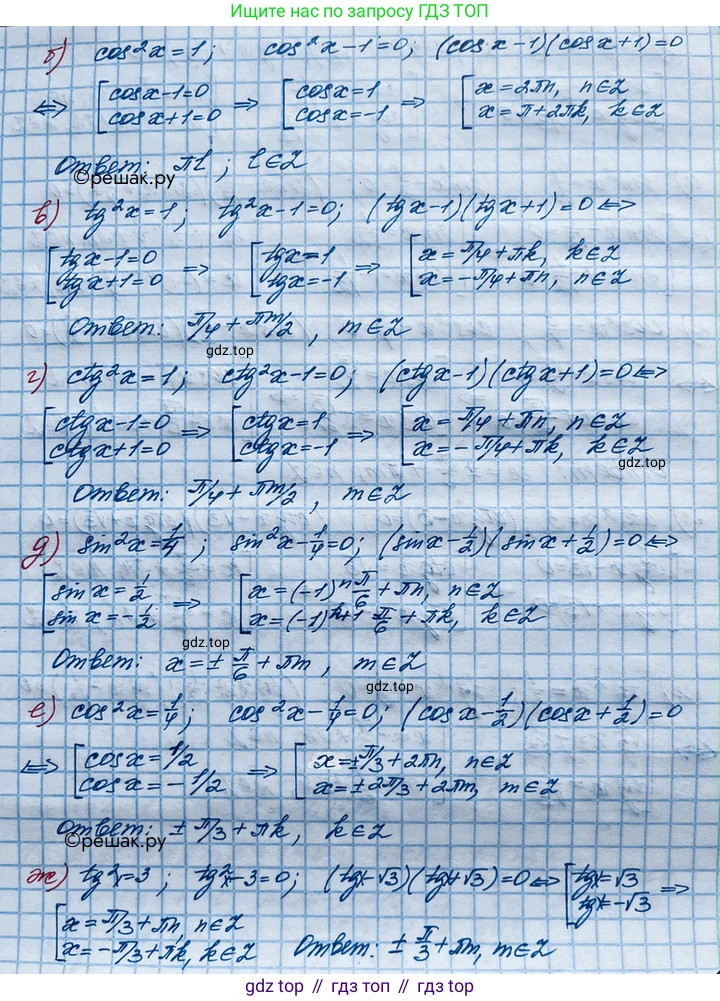 Ищите нас по запросу ГДЗ ТОП
б) cos²x=1; cos²x-1=0; (cosx-1)(cosx+1)=0
⟺ [cosx-1=0 ⇒ [cosx=1 ⇒ [x=2πn, n∈Z
cosx+1=0 cosx=-1 x=π+2πk, k∈Z
Ответ: πl; l∈Z
©решак.ру
в) tg²x=1; tg²x-1=0; (tgx-1)(tgx+1)=0 ⟺
[tgx-1=0 ⇒ [tgx=1 ⇒ [x=π/4+πk, k∈Z
tgx+1=0 tgx=-1 x=-π/4+πn, n∈Z
Ответ: π/4+πm/2, m∈Z
gdz.top
г) ctg²x=1; ctg²x-1=0; (ctgx-1)(ctgx+1)=0 ⟺
[ctgx-1=0 ⇒ [ctgx=1 ⇒ [x=π/4+πn, n∈Z
ctgx+1=0 ctgx=-1 x=-π/4+πk, k∈Z
gdz.top
Ответ: π/4+πm/2, m∈Z
д) sin²x=1/4; sin²x-1/4=0; (sinx-1/2)(sinx+1/2)=0 ⟺
[sinx=1/2 ⇒ [x=(-1)ⁿ π/6+πn, n∈Z
sinx=-1/2 x=(-1)ᵏ⁺¹ π/6+πk, k∈Z
Ответ: x=±π/6+πm, m∈Z
gdz.top
е) cos²x=1/4; cos²x-1/4=0; (cosx-1/2)(cosx+1/2)=0
⟺ [cosx=1/2 ⇒ [x=±π/3+2πn, n∈Z
cosx=-1/2 x=±2π/3+2πm, m∈Z
Ответ: ±π/3+πk, k∈Z
©решак.ру
ж) tg²x=3; tg²x-3=0; (tgx-√3)(tgx+√3)=0 ⟺ [tgx=√3 ⇒
tgx=-√3
[x=π/3+πn, n∈Z
x=-π/3+πk, k∈Z Ответ: ±π/3+πm, m∈Z
gdz.top // гдз топ // gdz.top // гдз топ // gdz.top